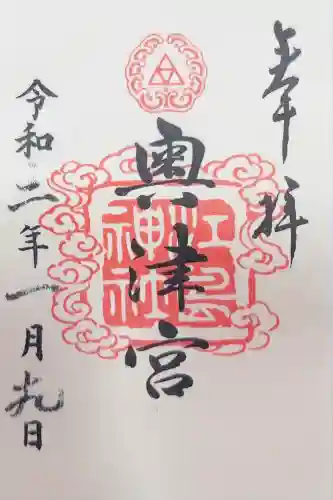 奉拝
奧津宮
江島
神社
令和二年一月九日